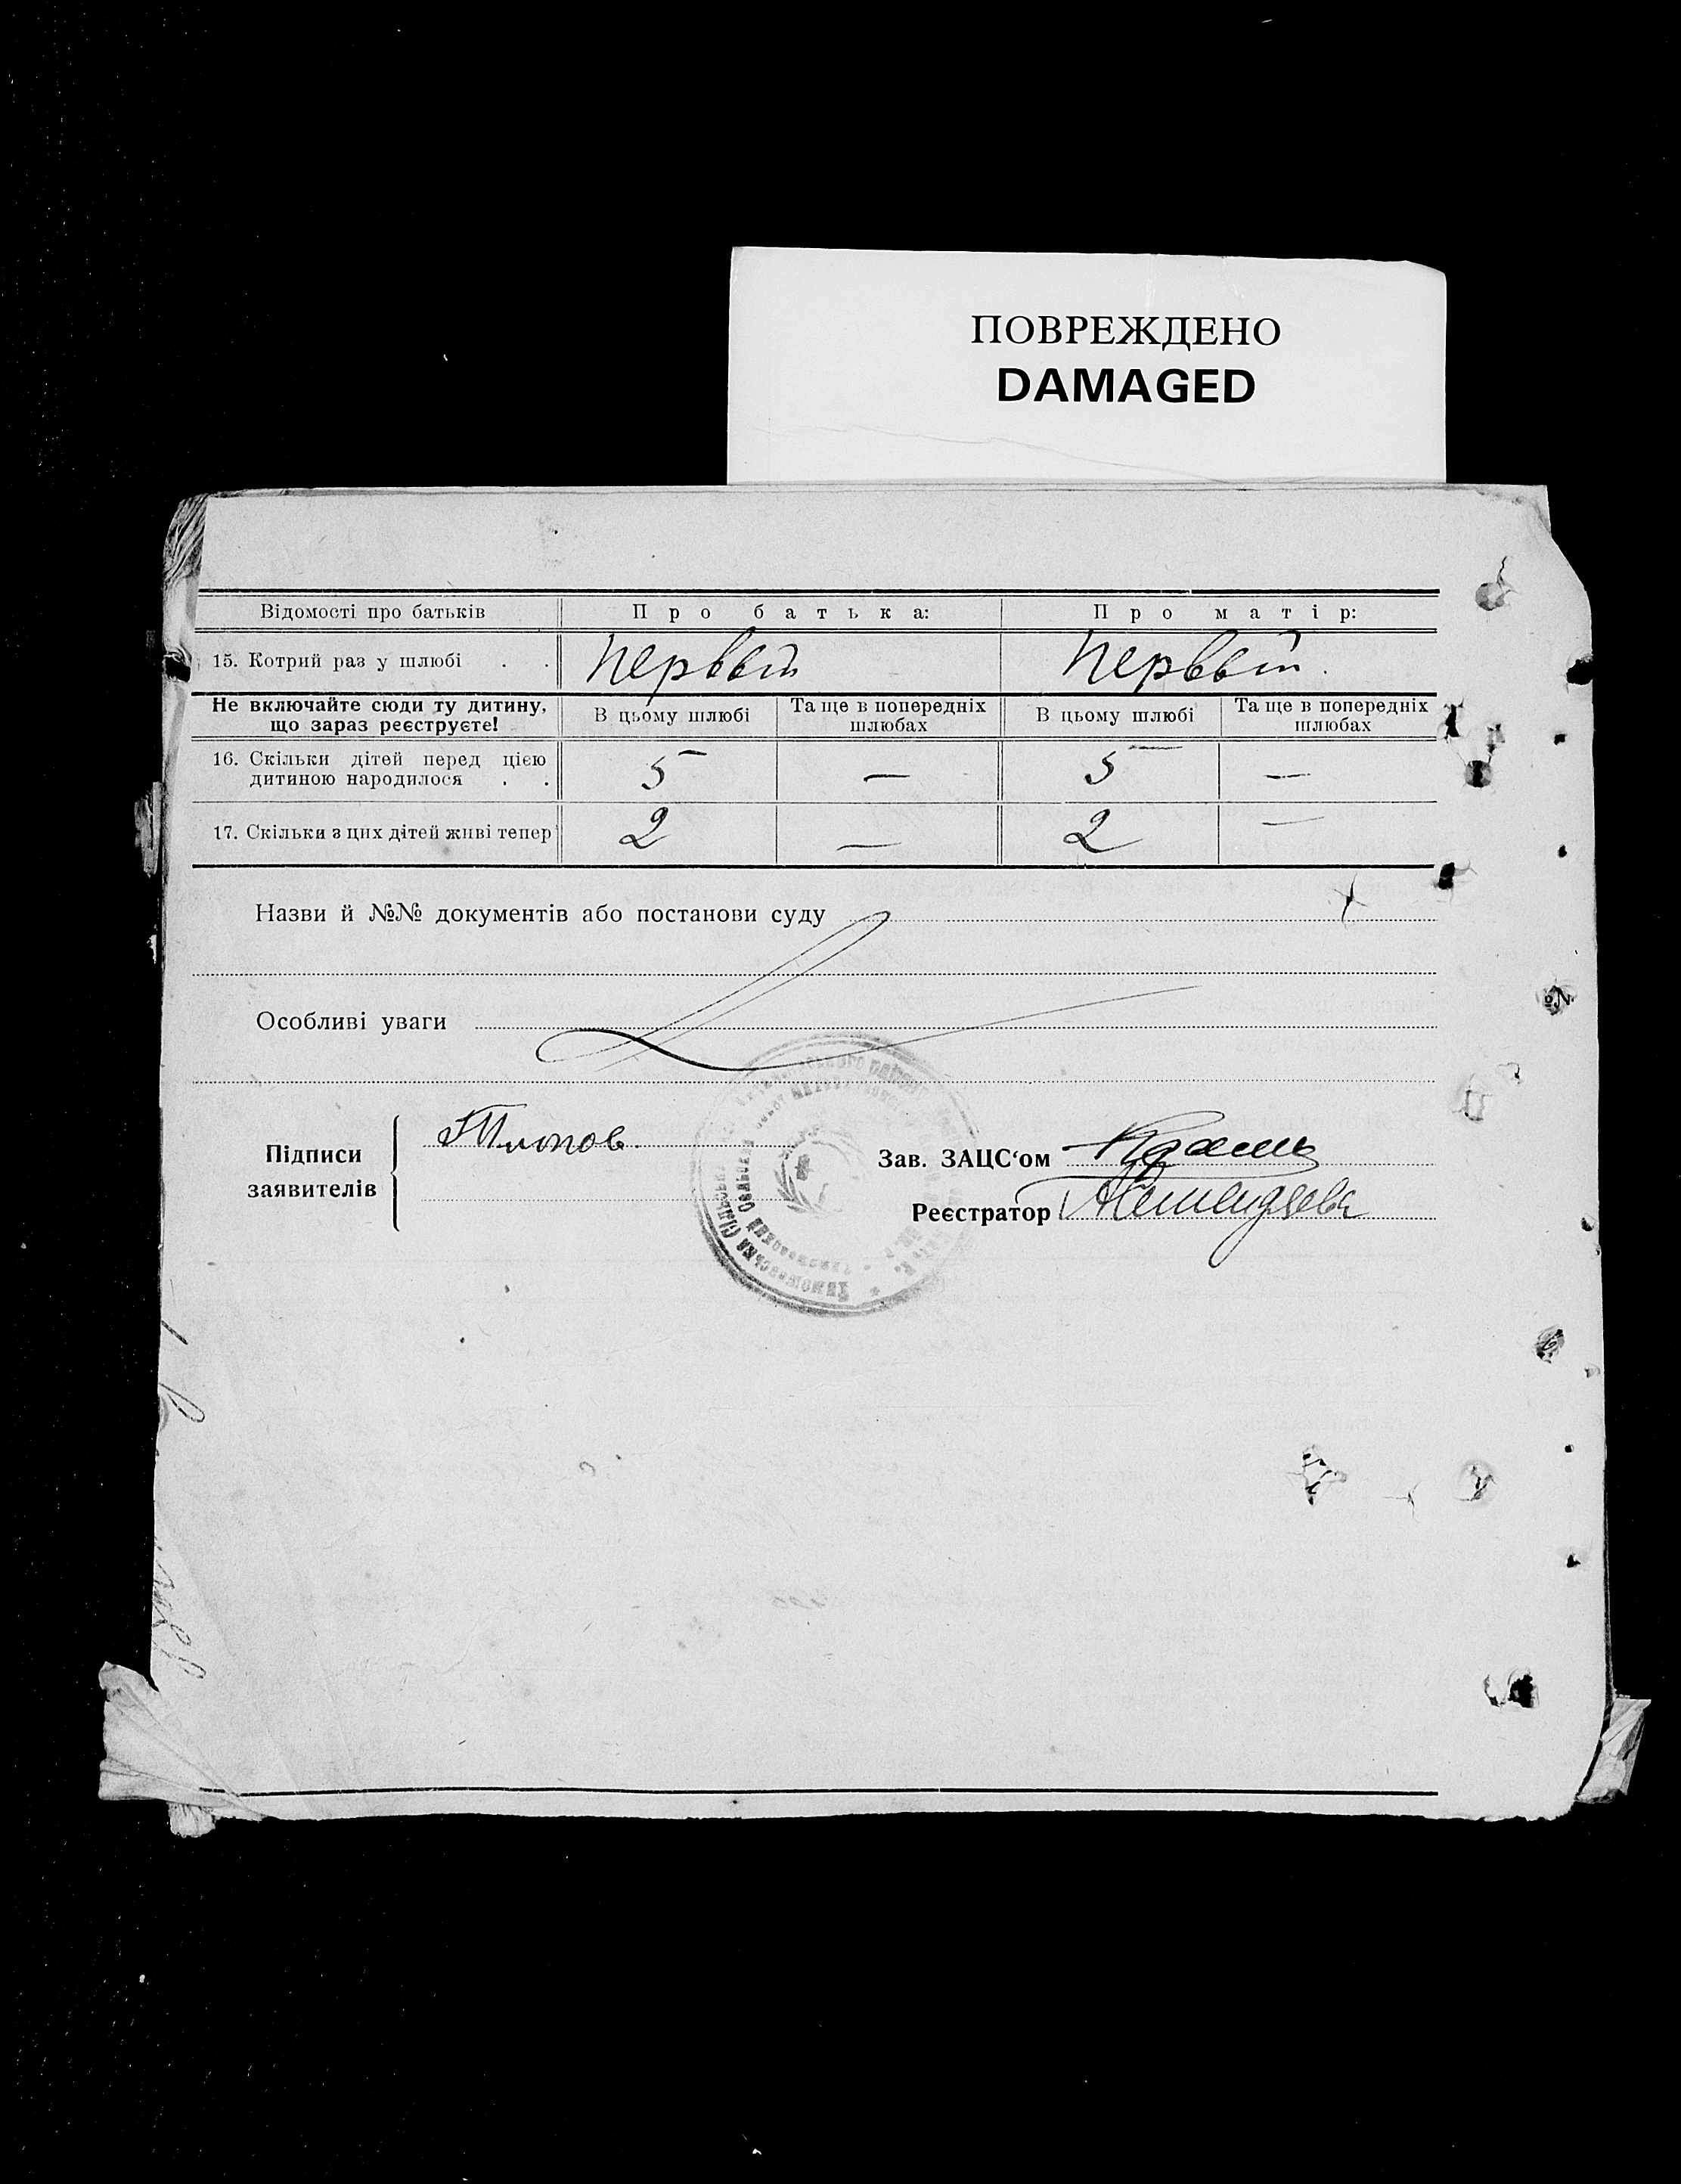 ПОВРЕЖДЕНО
DAMAGED
Відомості про батьків Про батька: Про матір:
15. Котрий раз у шлюбі . . первый первый.
Не включайте сюди ту дитину, що зараз реєструєте! В цьому шлюбі Та ще в попередніх шлюбах В цьому шлюбі Та ще в попередніх шлюбах
16. Скільки дітей перед цією
дитиною народилося . . 5 — 5 —
17. Скільки з цих дітей живі тепер 2 — 2 —
Назви й №№ документів або постанови суду
Особливі уваги
Підписи
заявителів
Зав. ЗАЦС‘ом
Реєстратор